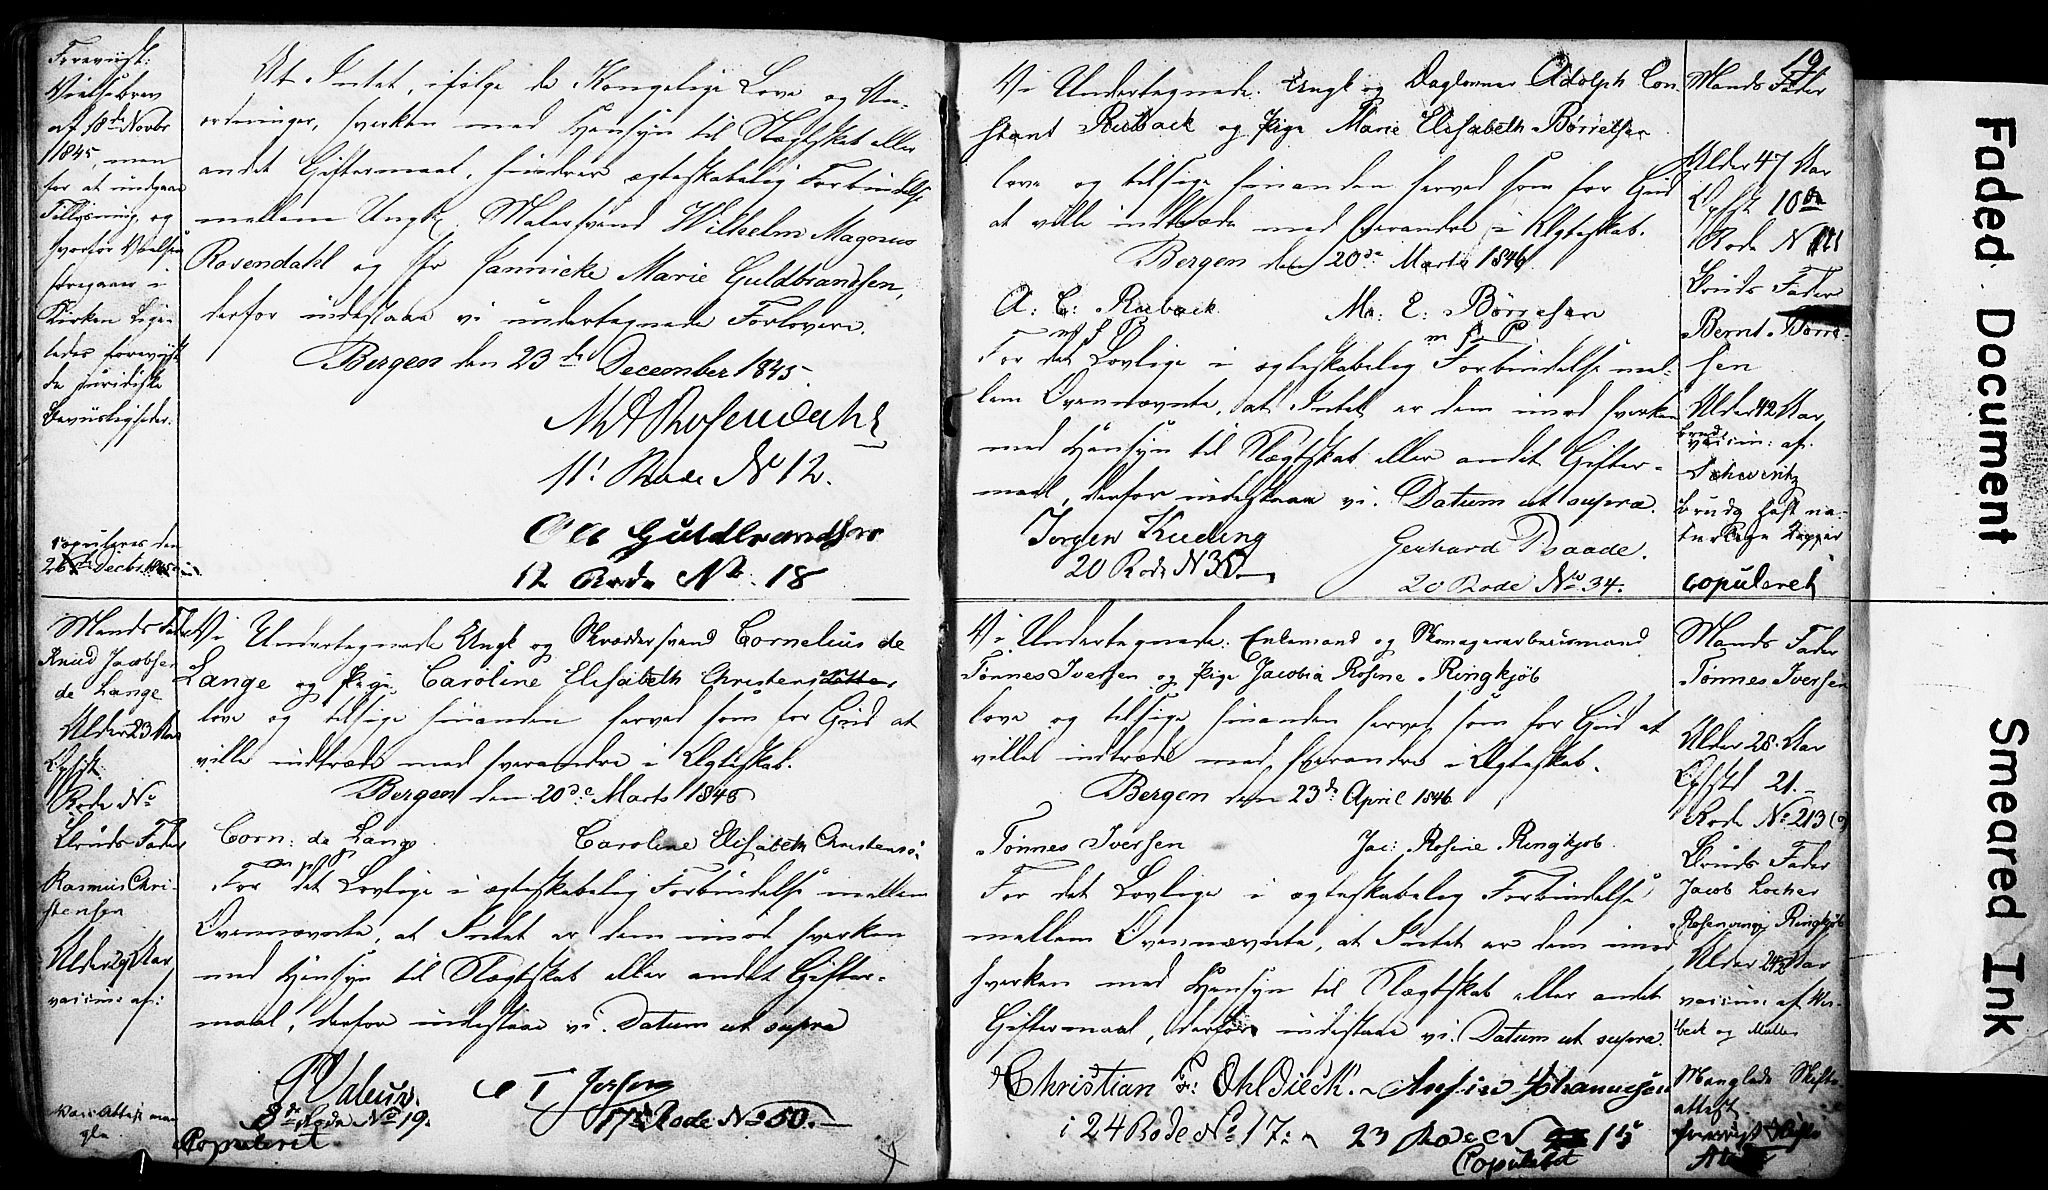 Foreviist:
Vielsebrev
af 10de Novbr
1845, men
for at undgaae
Tillysning, og
hvorfor Vielsen
foregaaer i
Kirken. Lige-
ledes foreviist
de juridiske
Beviisligheder.
copuleres den
26de Decbr 1845
At Intet, ifølge de Kongelige Love og An-
ordninger, hverken med Hensyn til Slægtskab eller
andet Giftermaal, hindrer ægteskabelig Forbindelse
mellem Ungk. Malersvend Wilhelm Magnus
Rosendahl og Jfr Jannicke Marie Guldbrandsen,
derfor indestaae vi undertegnede Forlovere.
Bergen den 23de December 1845.
Rosendahl
11: Rode No 12.
Ole Guldbrandsen
12 Rode No 18
Mands Fader
Knud Jacobsen
de Lange
Alder 23 Aar
Opfst.
Rode No
Bruds Fader
Rasmus Chri-
stensen
Alder 29 Aar
vaccin: af:
Vacc Attest man-
gler
Vi Undertegnede Ungk og Skræddersvend Cornelius de
Lange og Pige Caroline Elisabeth Christensdatter
love og tilsige hinanden herved som for Gud at
ville indtræde med hverandre i Ægteskab.
Bergen den 20de Marts 1846
Corn: de Lange
m p P
Caroline Elisabeth Christensd.
For det Lovlige i ægteskabelig Forbindelse mellem
Ovennævnte, at Intet er dem imod hverken
med Hensyn til Slægtskab eller andet Gifter-
maal, derfor indestaae vi. Datum ut supra
8de Rode No 19.
17de Rode No 50.
Copuleret
19
Vi Undertegnede: Ungk og Dagleiner Adolph Con-
stant Ruback og Pige Marie Elisabeth Børresen
love og tilsige hinanden herved som for Gud
at ville indtræde med hverandre i Ægteskab.
Bergen den 20de Marts 1846.
A: C: Ruback
Ma: E: Børresen
m f P
m f P
For det Lovlige i ægteskabelig Forbindelse mel-
lem Ovennævnte, at Intet er dem imod hverken
med Hensyn til Slægtskab eller andet Gifter-
maal, derfor indestaae vi. Datum ut supra.
Jørgen Kuding
20 Rode N 35
Gerhard Raade.
20 Rode No 34.
Mands Fader
Alder 47 Aar
Opfst 10de
Rode N 111
Bruds Fader
Bernt Børre-
sen
Alder 42 Aar
Brud
vaccin: af.
Schwentz
Brudg haft na-
turlige Kopper
copuleret
Vi Undertegnede: Enkemand og Skomagerarbeidsmand
Tønnes Iversen og Pige Jacobia Rosine Ringkjøb
love og tilsige hinanden herved som for Gud at
ville indtræde med hverandre i Ægteskab.
Bergen den 23de April 1846.
Tønnes Iversen
Jac: Rosine Ringkjøb.
For det Lovlige i ægteskabelig Forbindelse
mellem Ovennævnte, at Intet er dem imod
hverken med Hensyn til Slægtskab eller andet
Giftermaal, derfor indestaae vi. Datum ut supra.
Christian F: Ohldieck.
i 24 Rode No 17:
Johannesen
23 Rode N 15
Copuleret
Mands Fader
Tønnes Iversen
Alder 28 Aar
Opfst 21.
Rode No 213
Bruds Fader
Jacob Locher
Rosenvinge Ringkjøb
Alder 24½ Aar
vaccin: af Wis-
beck og Müller
Manglede Skifte-
attest
foreviist Skifte
Attest
Faded Document
Smeared Ink